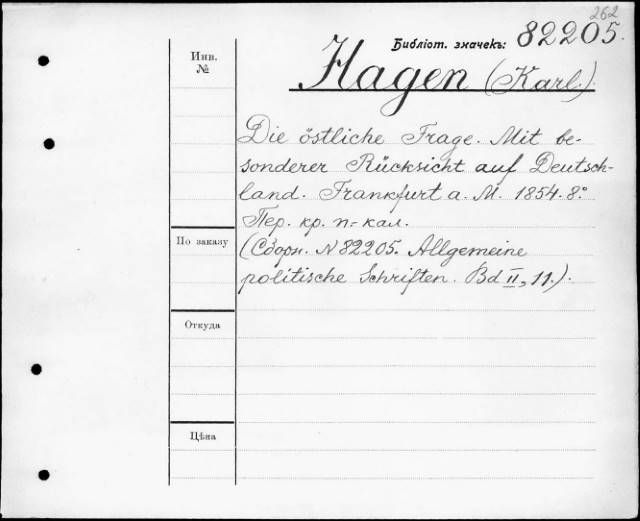 262
Библіот. значекъ: 82205.
Инв.
№
Hagen (Karl).
Die östliche Frage. Mit be-
sonderer Rücksicht auf Deutsch-
land. Frankfurt a. M. 1854. 8°.
Пер. кр. п.-кал.
По заказу
(Сборн. N 82205. Allgemeine
politische Schriften. Bd II, 11.).
Откуда
Цѣна